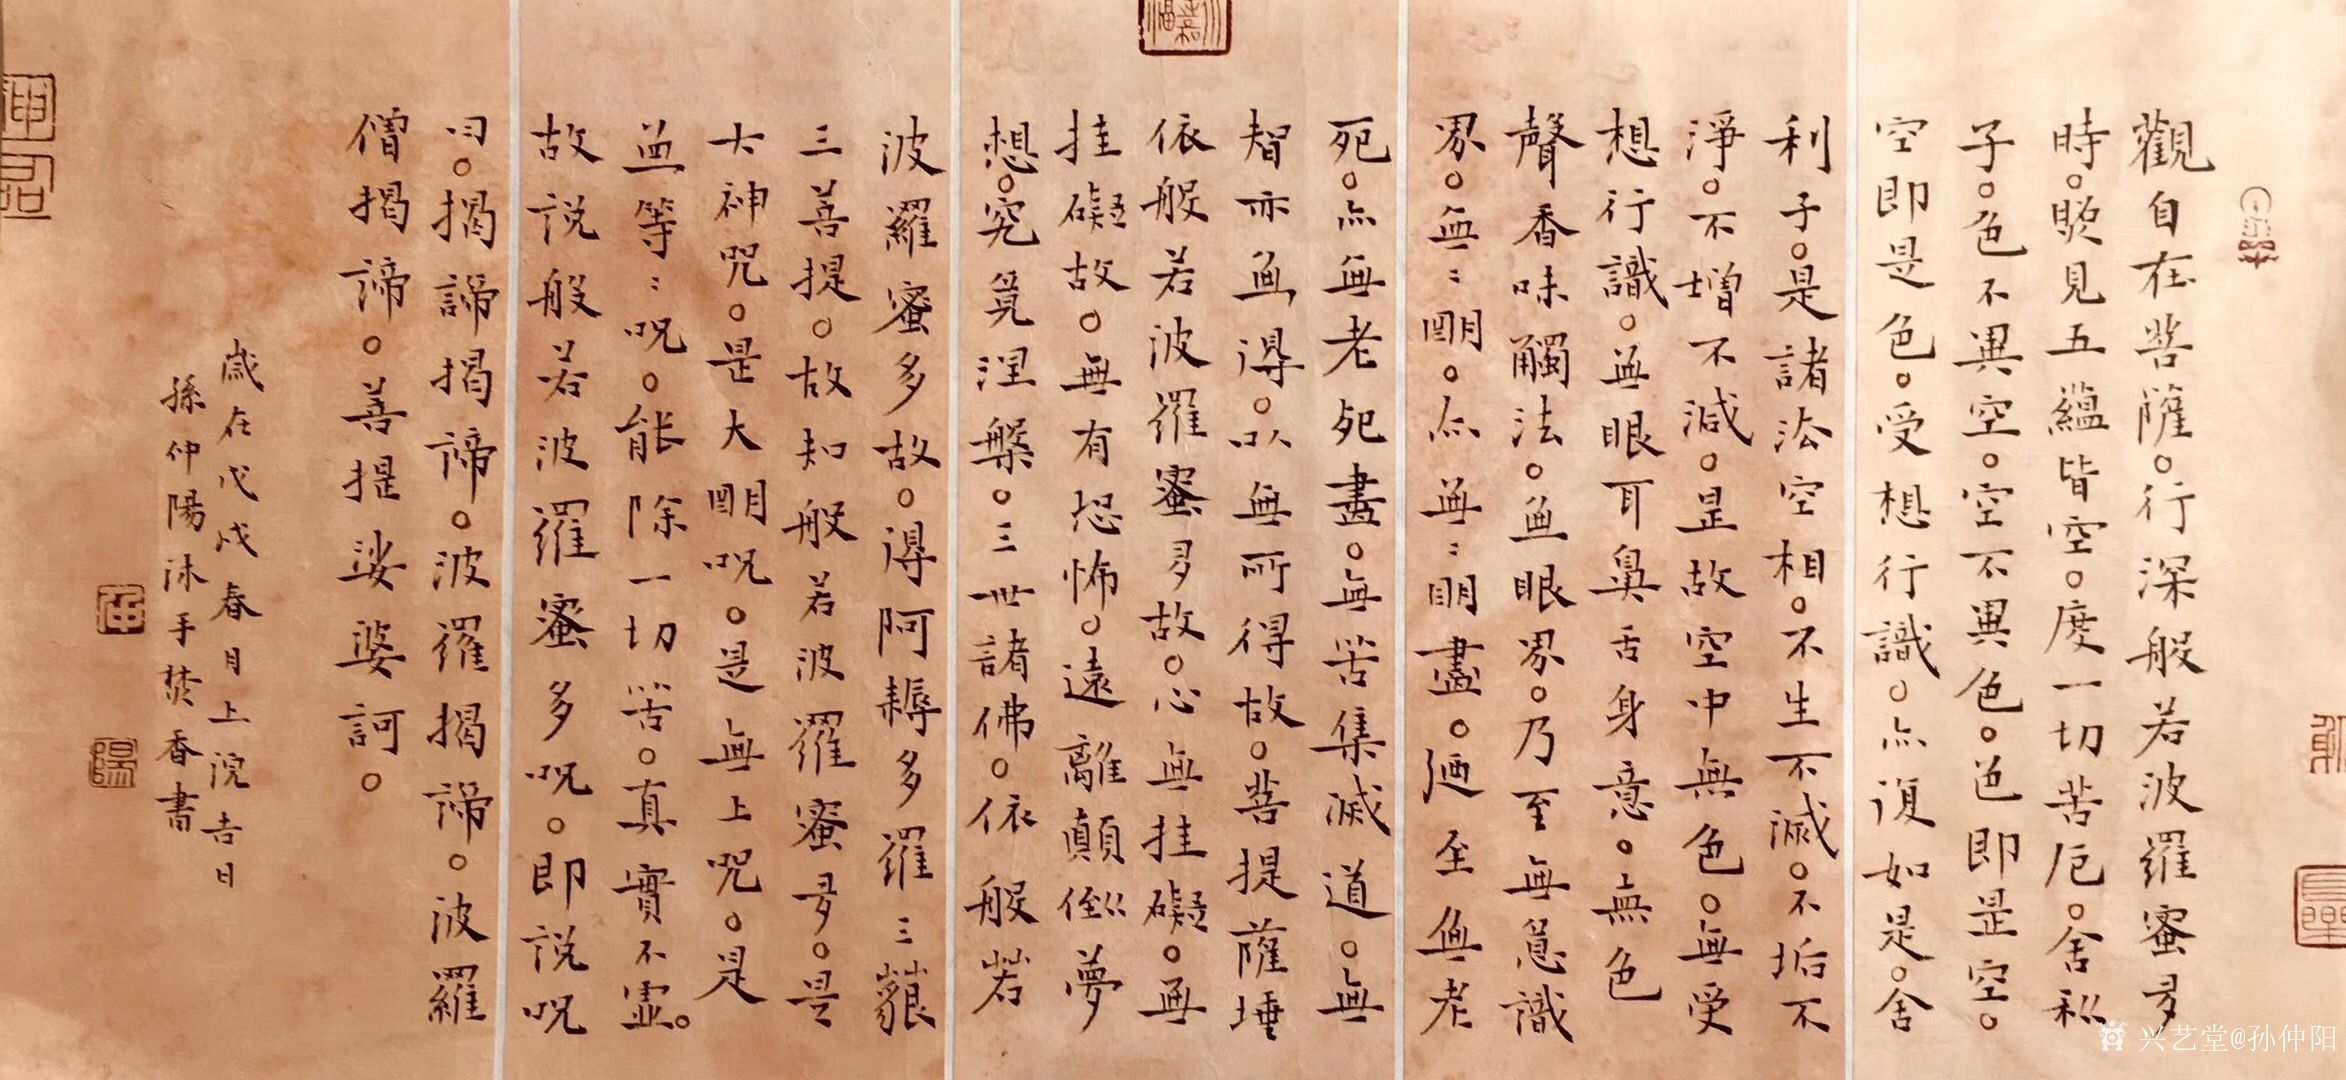 觀自在菩薩。行深般若波羅蜜多
時。照見五蘊皆空。度一切苦厄。舍利
子。色不異空。空不異色。色即是空。
空即是色。受想行識。亦復如是。舍
利子。是諸法空相。不生不滅。不垢不
淨。不增不減。是故空中無色。無受
想行識。無眼耳鼻舌身意。無色
聲香味觸法。無眼界。乃至無意識
界。無〻明。亦無〻明盡。迺至無老
死。亦無老死盡。無苦集滅道。無
智亦無得。以無所得故。菩提薩埵
依般若波羅蜜多故。心無挂礙。無
挂礙故。無有恐怖。遠離顛倒夢
想。究竟涅槃。三世諸佛。依般若
波羅蜜多故。得阿耨多羅三藐
三菩提。故知般若波羅蜜多。是
大神咒。是大明咒。是無上咒。是
無等〻咒。能除一切苦。真實不虛。
故說般若波羅蜜多咒。即說咒
曰。揭諦揭諦。波羅揭諦。波羅
僧揭諦。菩提娑婆訶。
歲在戊戌春月上浣吉日
孫仲陽沐手焚香書
兴艺堂@孙仲阳